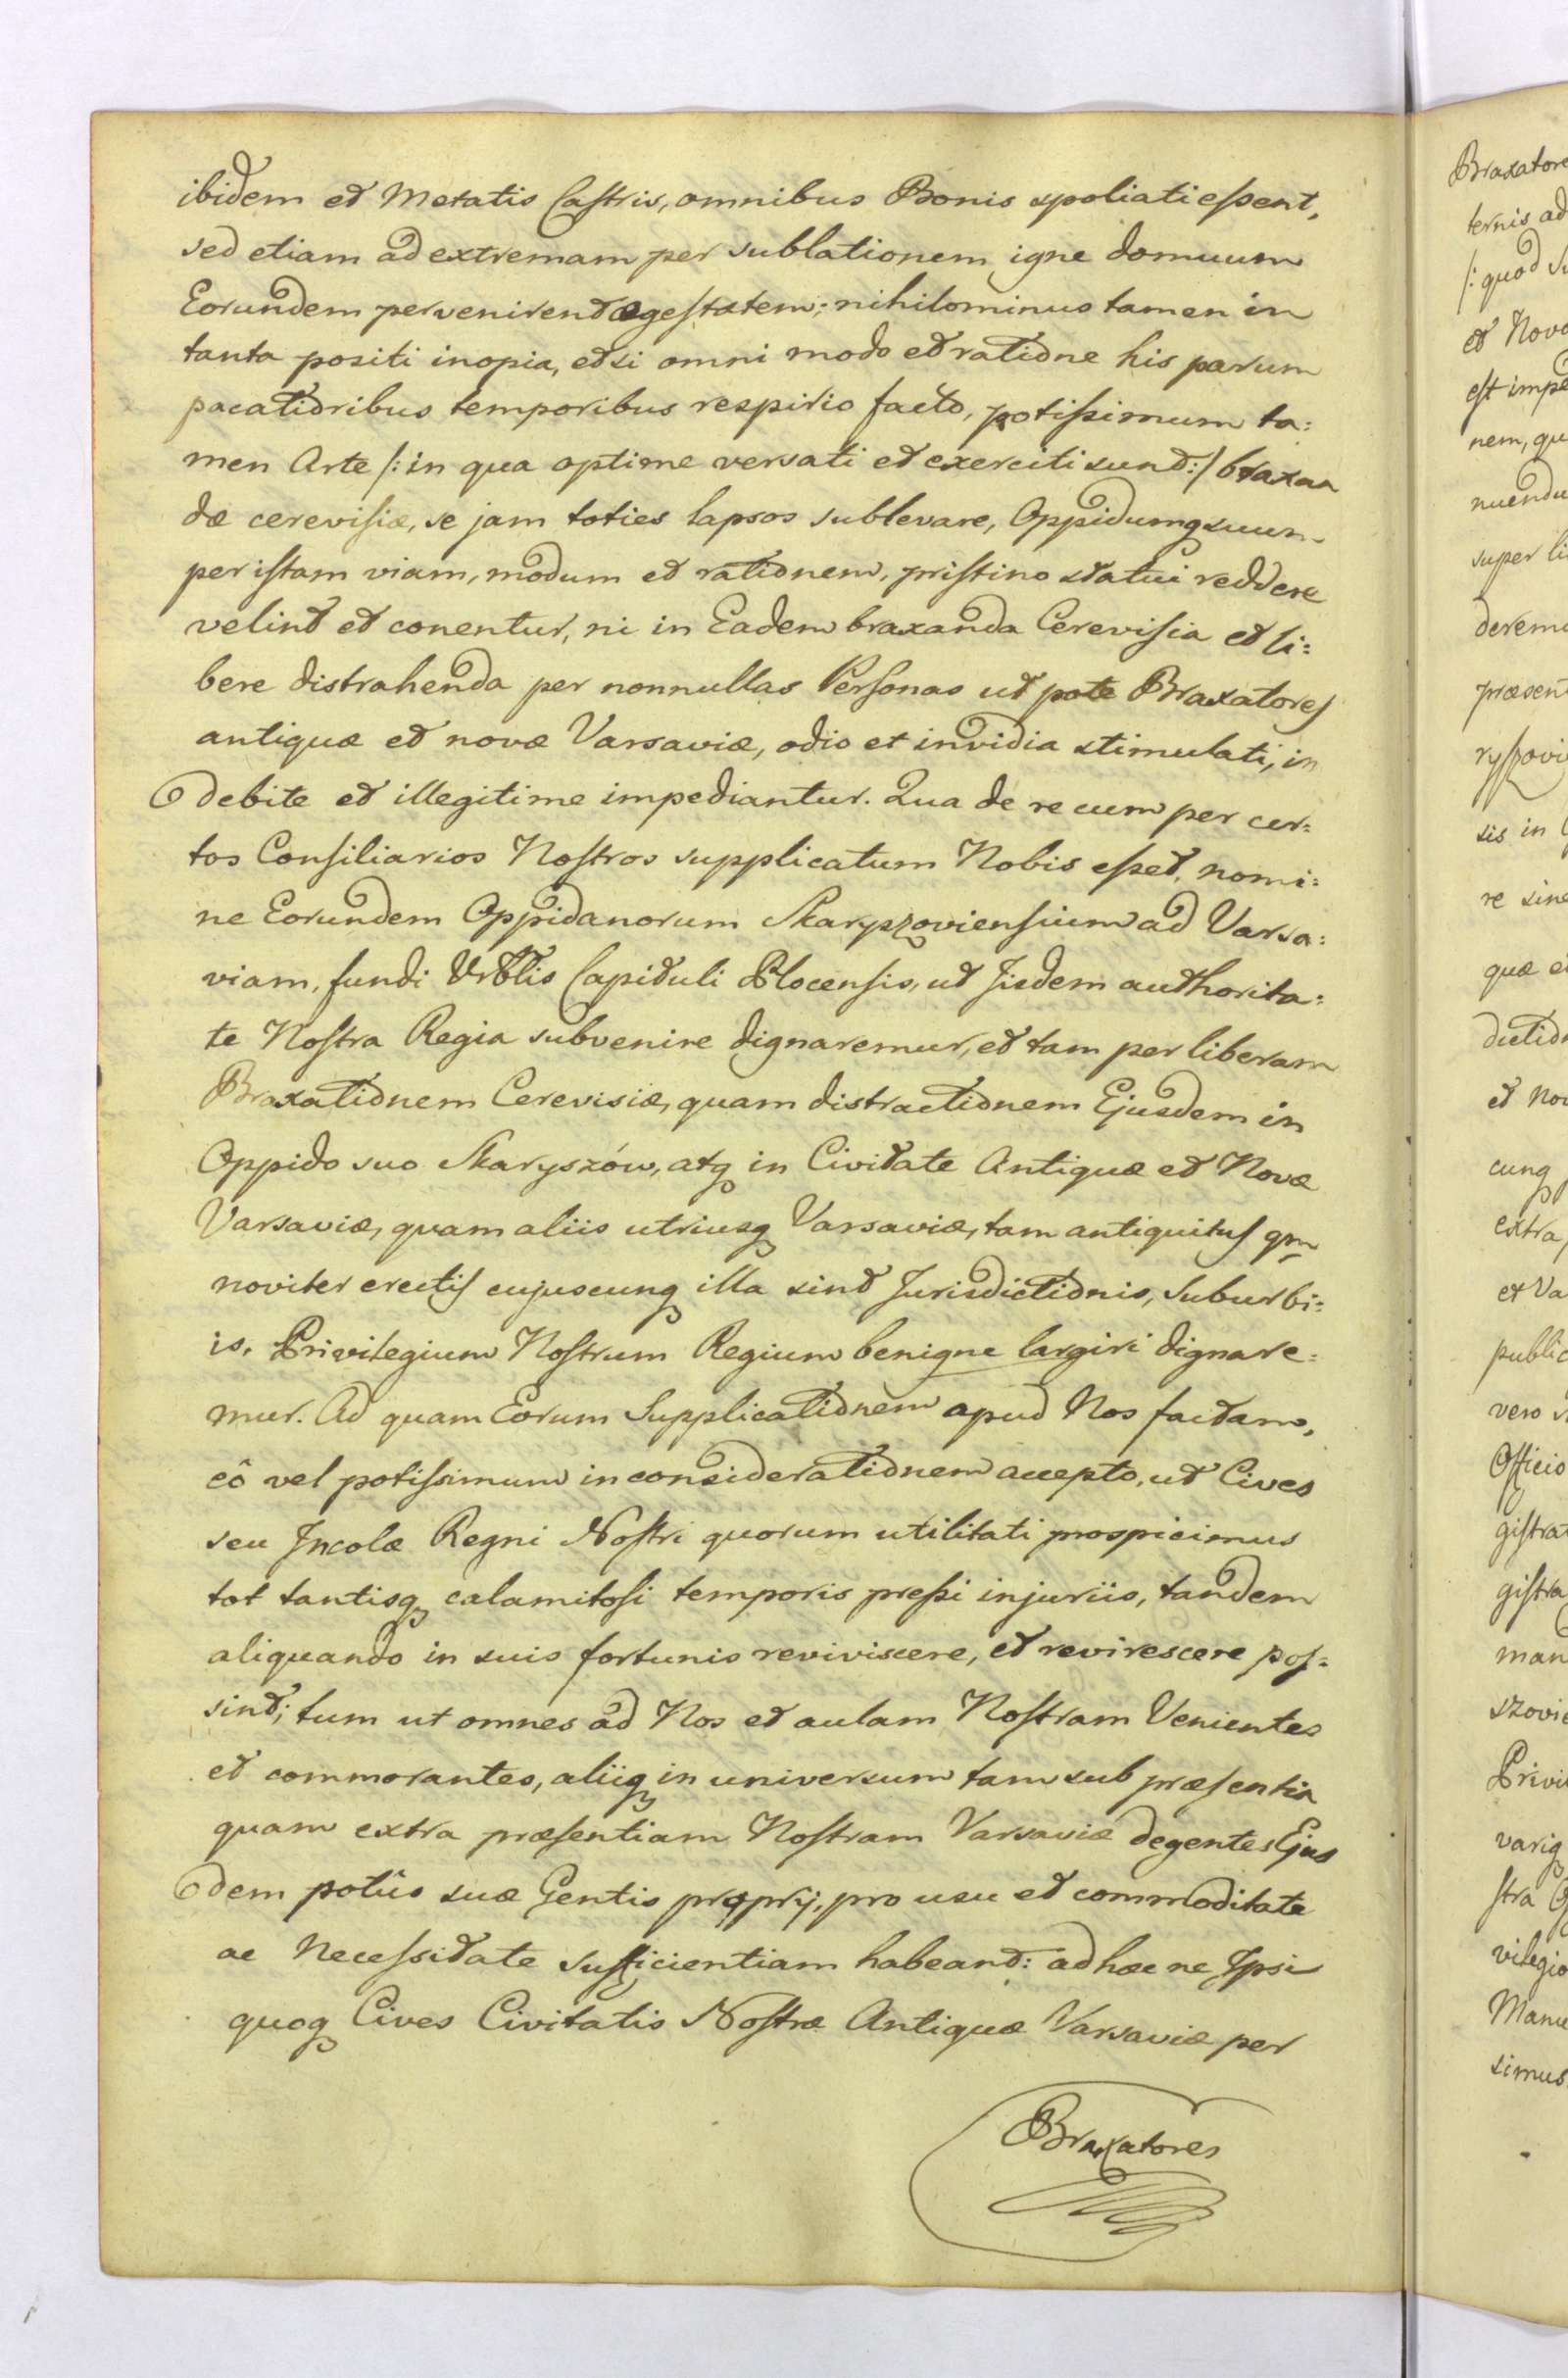 ibidem et Metatis Castris, omnibus Bonis spoliati essent,
sed etiam ad extremam per sublationem igne domuum
Eorundem pervenirent egestatem; nihilominus tamen in
tanta positi inopia, etsi omni modo et ratione his parum
pacatioribus temporibus respirio facto, potissimum ta:
men Arte /: in qua optime versati et exerciti sunt :/ braxan
dæ cerevisiæ, se jam toties lapsos sublevare, Oppidumq suum
per istam viam, modum et rationem, pristino statui reddere
velint et conentur, ni in Eadem braxanda Cerevisia et li:
bere distrahenda per nonnullas Personas ut pote Braxatores
antiquæ et novæ Varsaviæ, odio et invidia stimulati, in
debite et illegitime impediantur. Qua de re cum per cer:
tos Consiliarios Nostros supplicatum Nobis esset, nomi:
ne Eorundem Oppidanorum Skaryszoviensium ad Varsa:
viam, fundi Vrblis Capituli Plocensis, ut Jisdem authorita:
te Nostra Regia subvenire dignaremur, et tam per liberam
Braxationem Cerevisiæ, quam distractionem Ejusdem in
Oppido suo Skaryszów, atq in Civitate Antiquæ et Novæ
Varsaviæ, quam aliis utriusq Varsaviæ, tam antiquitus qm
noviter erectis cujuscunq illa sint Jurisdictionis, Suburbi:
is, Privilegium Nostrum Regium benigne largiri dignare:
mur. Ad quam Eorum Supplicationem apud Nos factam,
eô vel potissimum in considerationem accepto, ut Cives
seu Jncolæ Regni Nostri quorum utilitati prospicimus
tot tantisq calamitosi temporis pressi injuriis, tandem
aliquando in suis fortunis reviviscere, et revirescere pos:
sint; tum ut omnes ad Nos et aulam Nostram Venientes
et commorantes, aliiq in universum tam sub præsentia
quam extra præsentiam Nostram Varsaviæ degentes Ejus
dem potûs suæ Gentis proprij, pro usu et commoditate
ac Necessitate sufficientiam habeant: ad hæc ne Jpsi
quoq Cives Civitatis Nostræ Antiquæ Varsaviæ per
Braxatores
ternis ad
/: quod
et Nov
est impe
nem, qu
nuendu
super li
derem
præsent
sis in
re sine
quæ
et No
cunq
extra
et Va
public
vero
Officio
gistrat
gistra
man
szovi
Privi
variq
stra
vilegio
Manu
simus